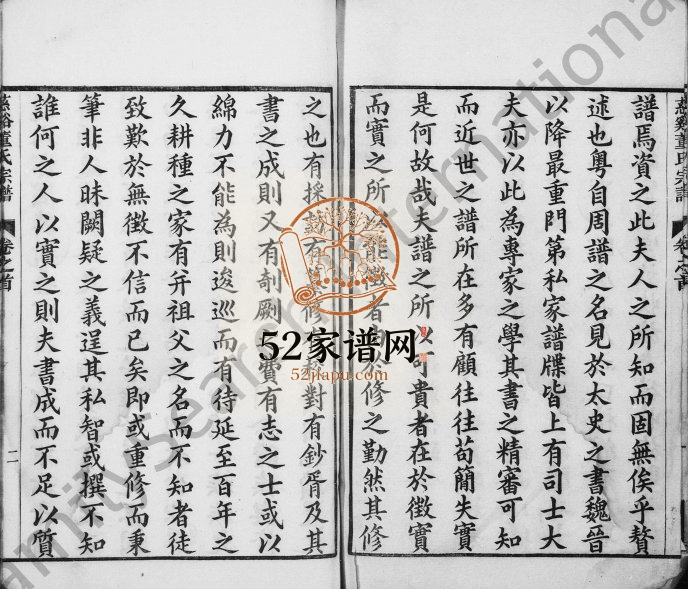 慈谿董氏宗譜
卷之首
譜焉資之此夫人之所知而固無俟乎贅
述也粵自周譜之名見於太史之書魏晉
以降最重門第私家譜牒皆上有司士大
夫亦以此為專家之學其書之精審可知
而近世之譜所在多有顧往往苟簡失實
是何故哉夫譜之所以可貴者在於徵實
而實之所 能徵者 修之勤然其修
之也有採 有 修 對有鈔胥及其
書之成則又有剞劂 費有志之士或以
綿力不能為則逡巡而有待延至百年之
久耕種之家有并祖父之名而不知者徒
致歎於無徵不信而已矣即或重修而秉
筆非人昧闕疑之義逞其私智或撰不知
誰何之人以實之則夫書成而不足以質
慈谿董氏宗譜
卷之首
二
52家谱网
52jiapu.com
FamilySearch International